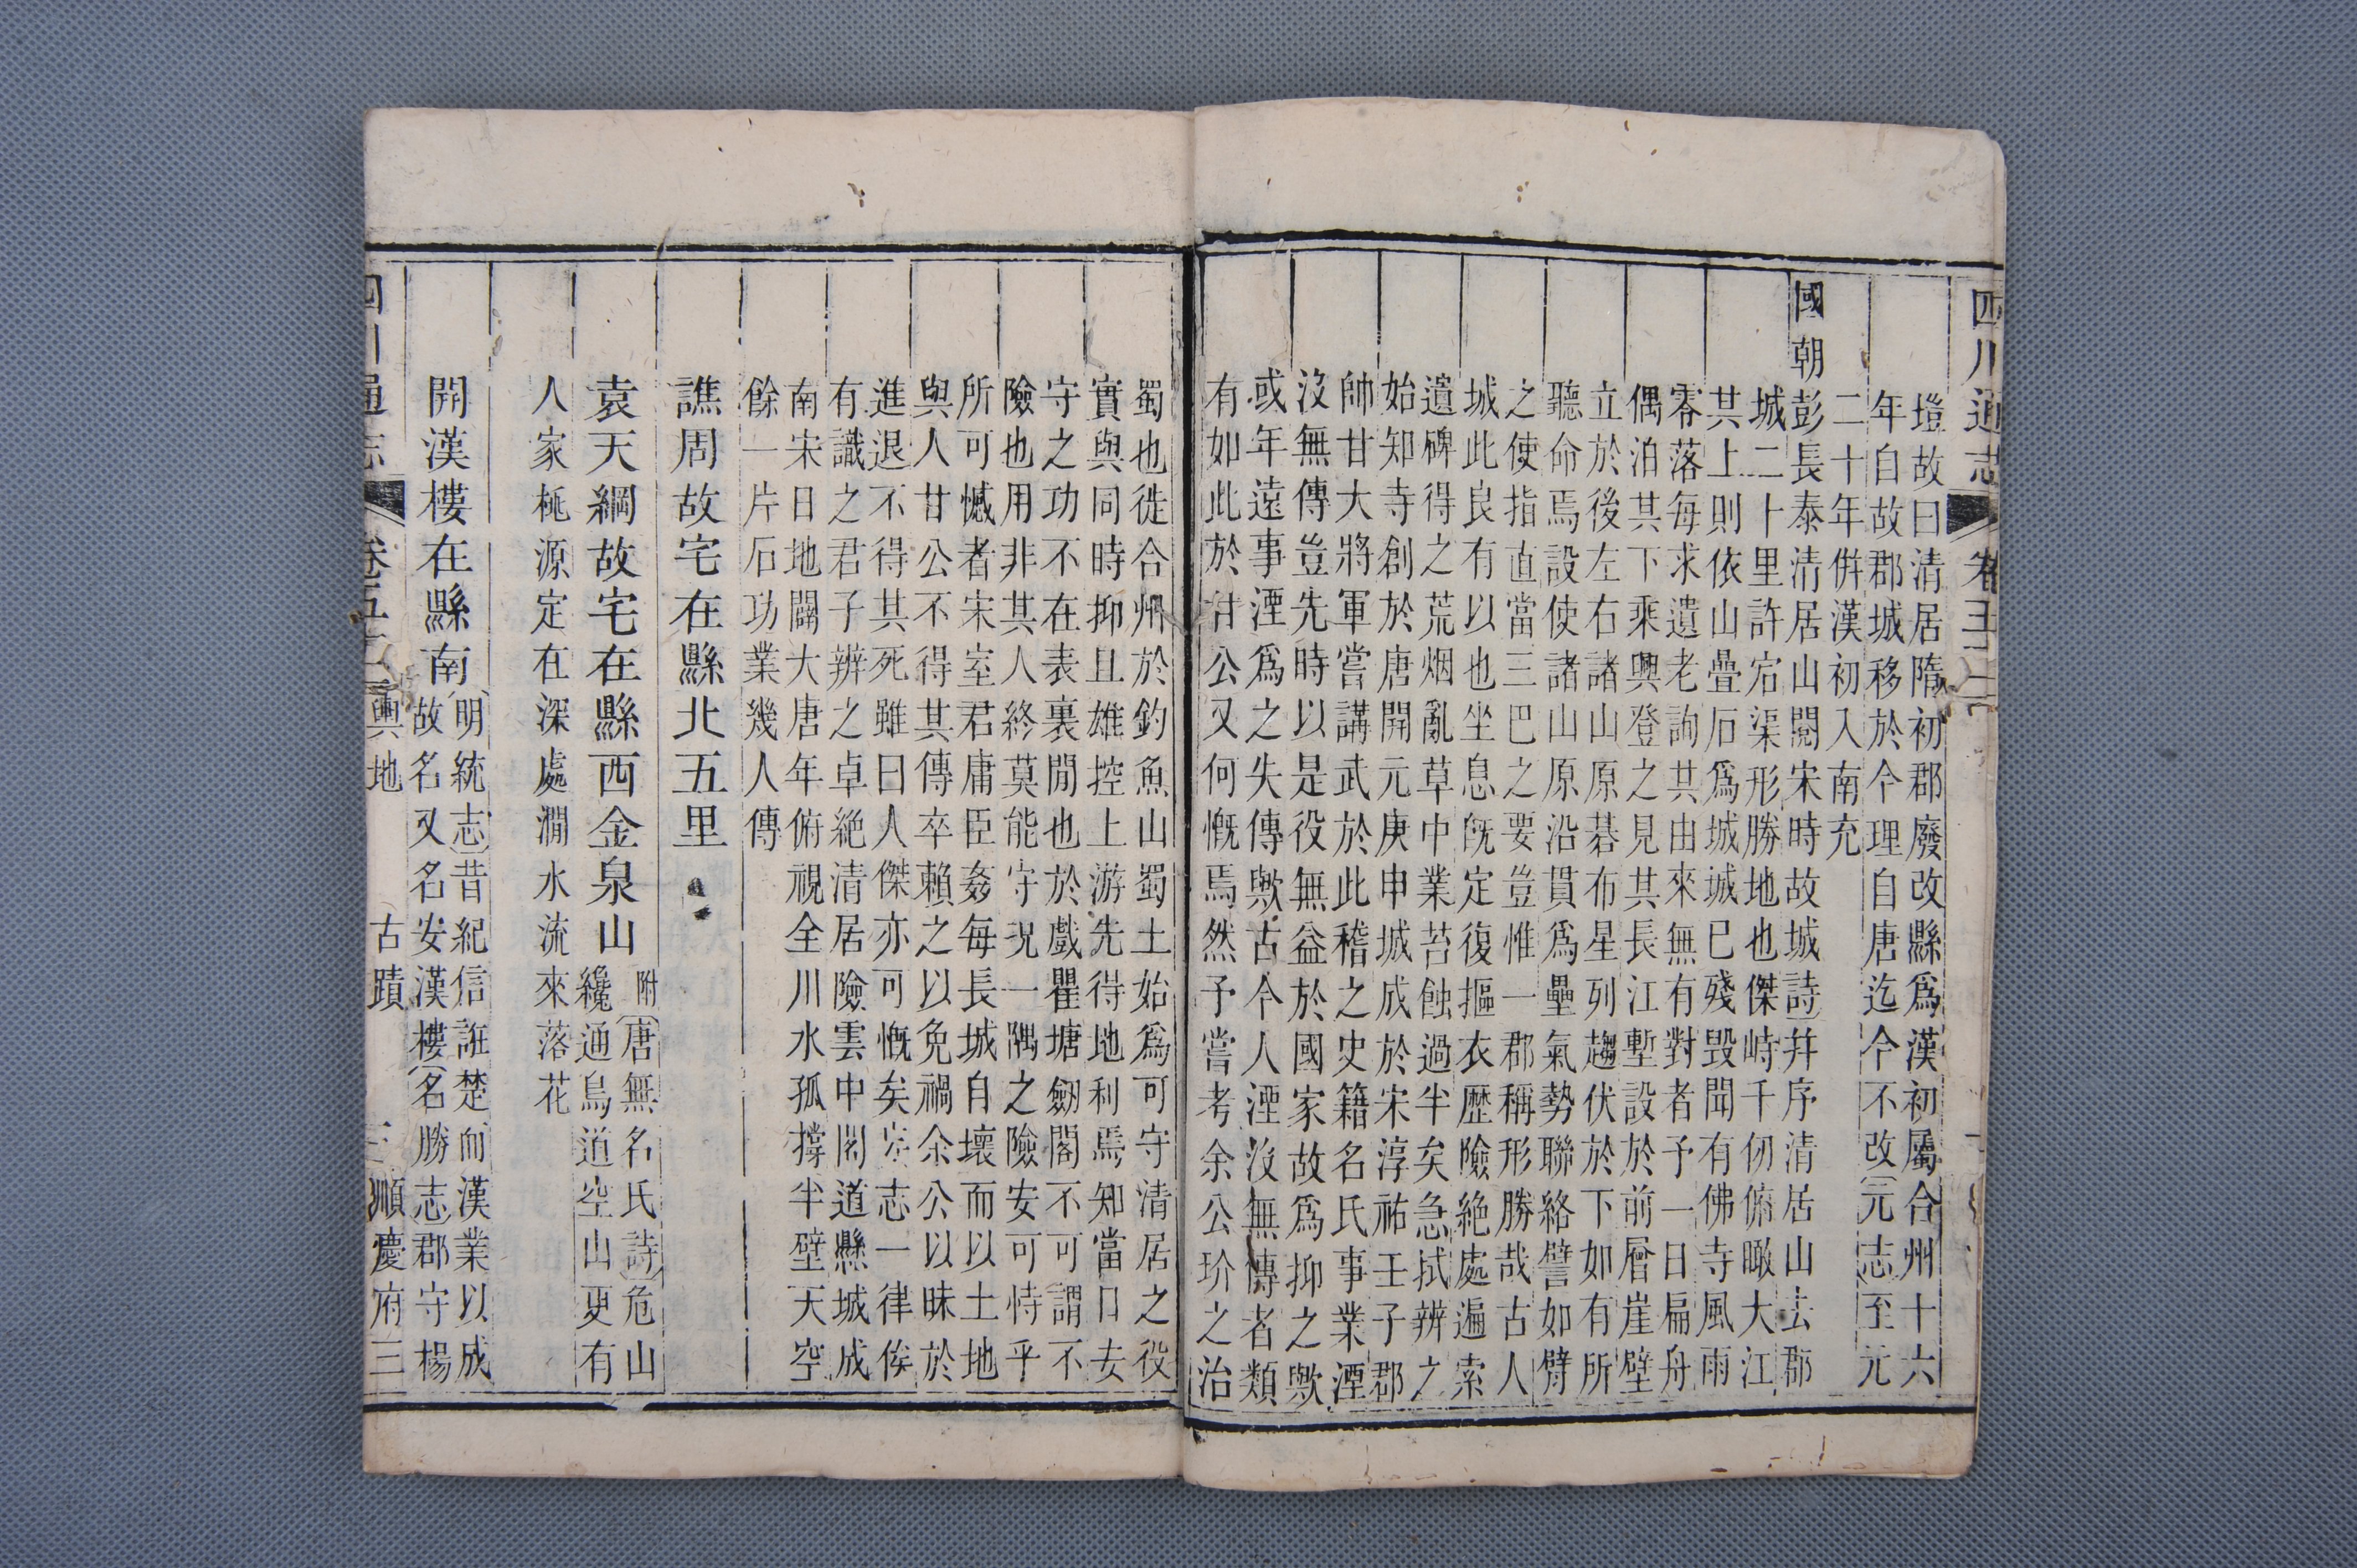 四川通志
卷五十三
塏故曰清居隋初郡廢改縣爲漢初屬合州十六
年自故郡城移於今理自唐迄今不改元志至元
二十年併漢初入南充
國朝彭長泰清居山閱宋時故城詩并序清居山去郡
城二十里許宕渠形勝地也傑峙千仞俯瞰大江
其上則依山疊石爲城城已殘毀聞有佛寺風雨
零落每求遺老詢其由來無有對者予一日扁舟
偶泊其下乘興登之見其長江塹設於前層崖壁
立於後左右諸山原碁布星列趨伏於下如有所
聽命焉設使諸山原沿貫爲壘氣勢聯絡譬如臂
之使指直當三巴之要豈惟一郡稱形勝哉古人
城此良有以也坐息既定復摳衣歷險絶處遍索
遺碑得之荒烟亂草中業苔蝕過半矣急拭辨之
始知寺創於唐開元庚申城成於宋淳祐壬子郡
帥甘大將軍嘗講武於此稽之史籍名氏事業湮
沒無傳豈先時以是役無益於國家故爲抑之歟
或年遠事湮爲之失傳歟古今人湮沒無傳者類
有如此於甘公又何慨焉然予嘗考余公玠之治
蜀也徙合州於釣魚山蜀土始爲可守清居之役
實與同時抑且雄控上游先得地利焉知當日女
守之功不在表裏閒也於戲瞿塘劒閣不可謂不
險也用非其人終莫能守況一隅之險安可恃乎
所可憾者宋室君庸臣姦每長城自壞而以土地
與人甘公不得其傳卒賴之以免禍余公以昧於
進退不得其死雖曰人傑亦可慨矣志一律俟
有識之君子辨之卓絶清居險雲中閣道懸城成
南宋日地闢大唐年俯視全川水孤撐半壁天空
餘一片石功業幾人傳
譙周故宅在縣北五里
袁天綱故宅在縣西金泉山
附唐無名氏詩危山
纔通鳥道空山更有
人家桃源定在深處澗水流來落花
開漢樓在縣南
明統志昔紀信誑楚而漢業以成
故名又名安漢樓名勝志郡守楊
四川通志
卷五十三輿地
古蹟
三
順慶府三